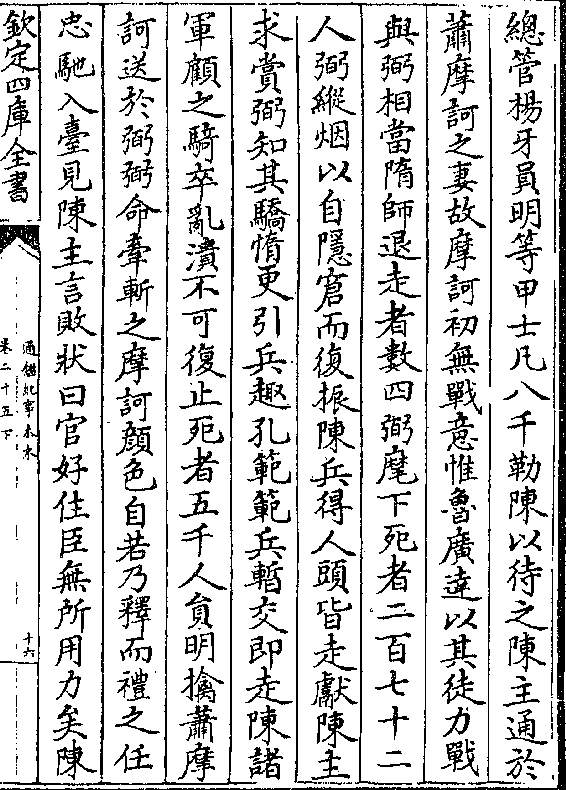 總管楊牙員明等甲士凡八千勒陳以待之陳主通於
蕭摩訶之妻故摩訶初無戰意惟魯廣達以其徒力戰
與弼相當隋師退走者數四弼麾下死者二百七十二
人弼縱烟以自隱窘而復振陳兵得人頭皆走獻陳主
求賞弼知其驕惰更引兵趣孔範範兵暫交即走陳諸
軍顧之騎卒亂潰不可復止死者五千人員明擒蕭摩
訶送於弼弼命牽斬之摩訶顔色自若乃釋而禮之任
忠馳入臺見陳主言敗狀曰官好住臣無所用力矣陳
欽定四庫全書
通鑑紀事本末
卷二十五下
十六